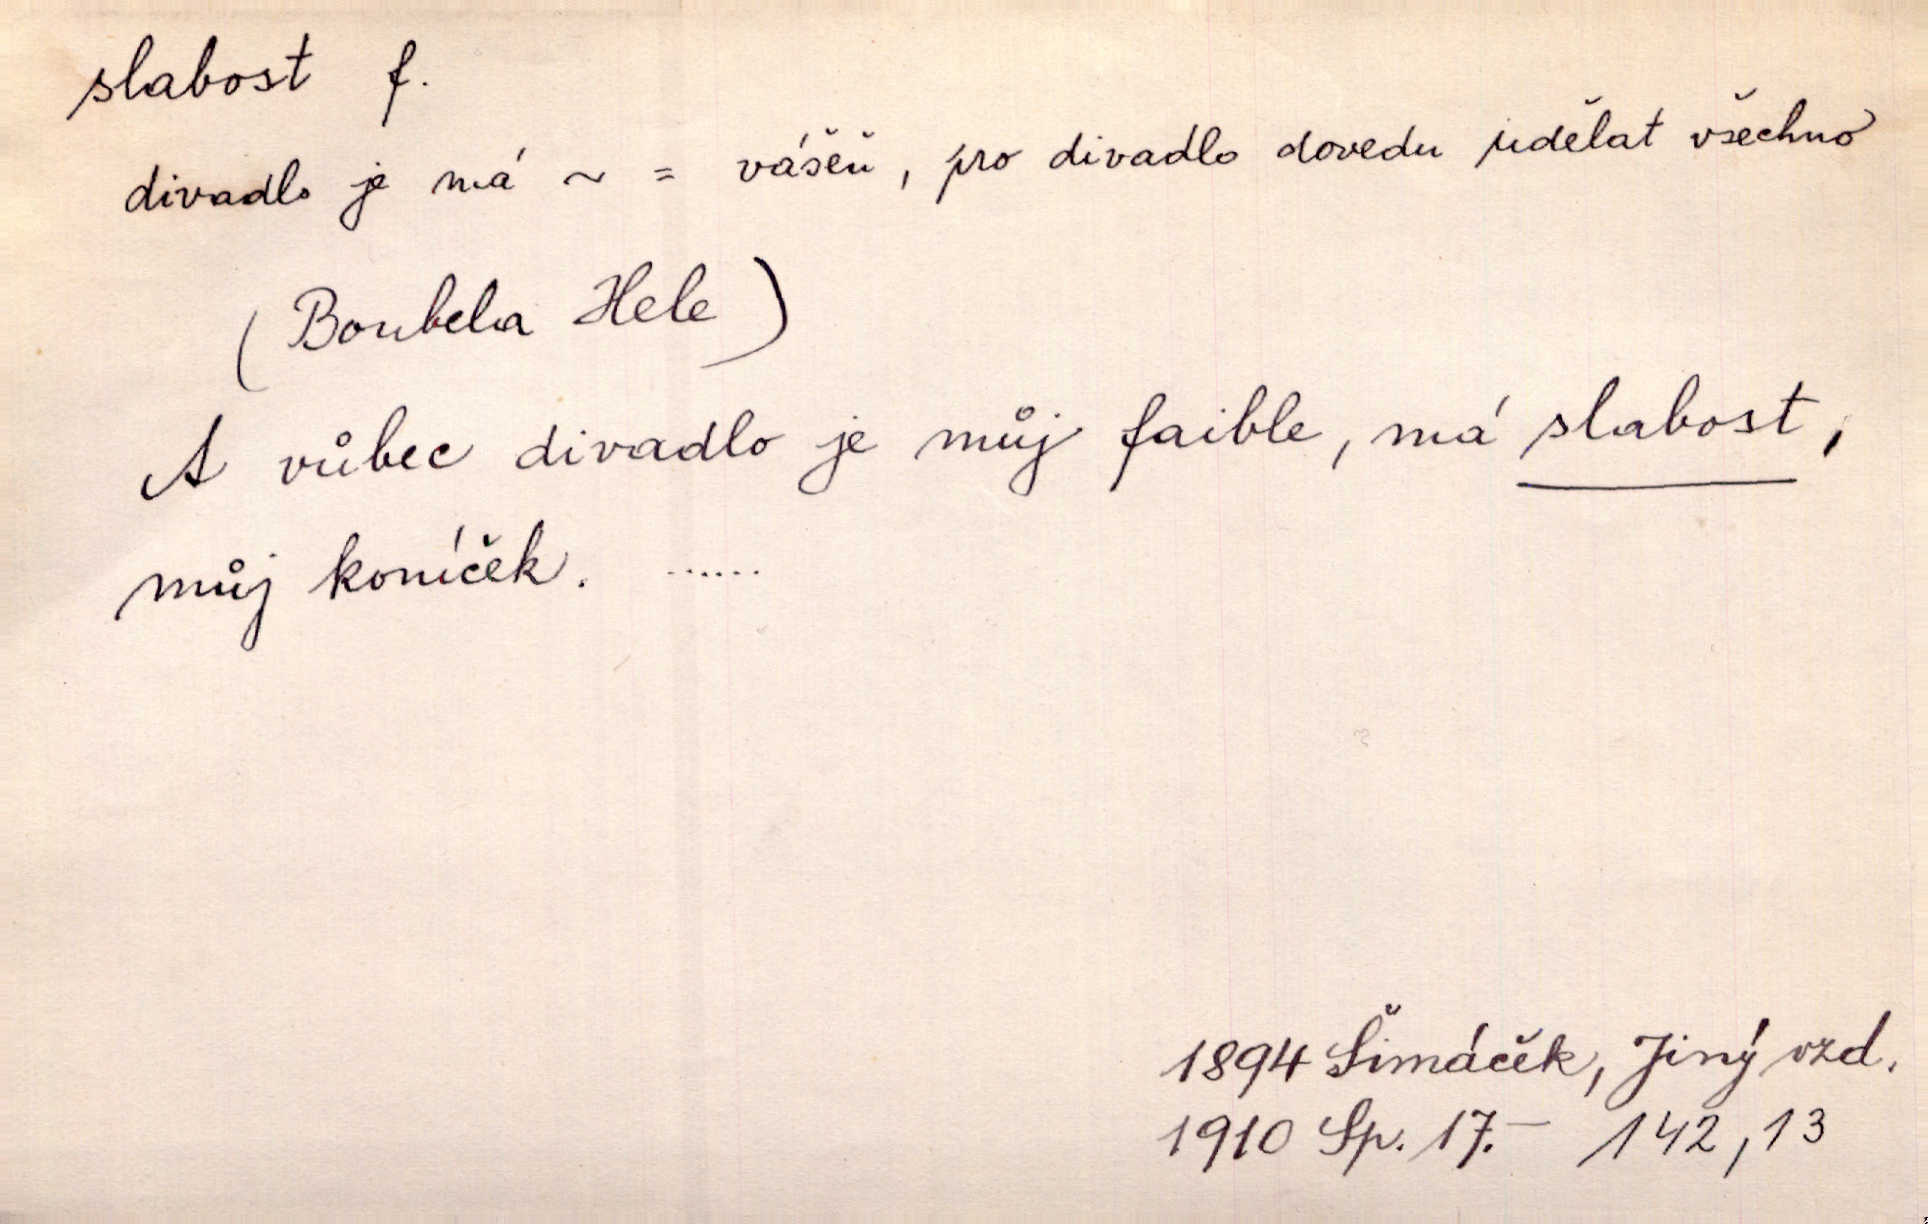 slabost f.
divadlo je má ~ = vášeň, pro divadlo dovedu udělat všechno
(Boubela Hele)
A vůbec divadlo je můj faible, má slabost,
můj koníček. ......
1894 Šimáček, Jiný vzd.
1910 Sp. 17.- 142,13